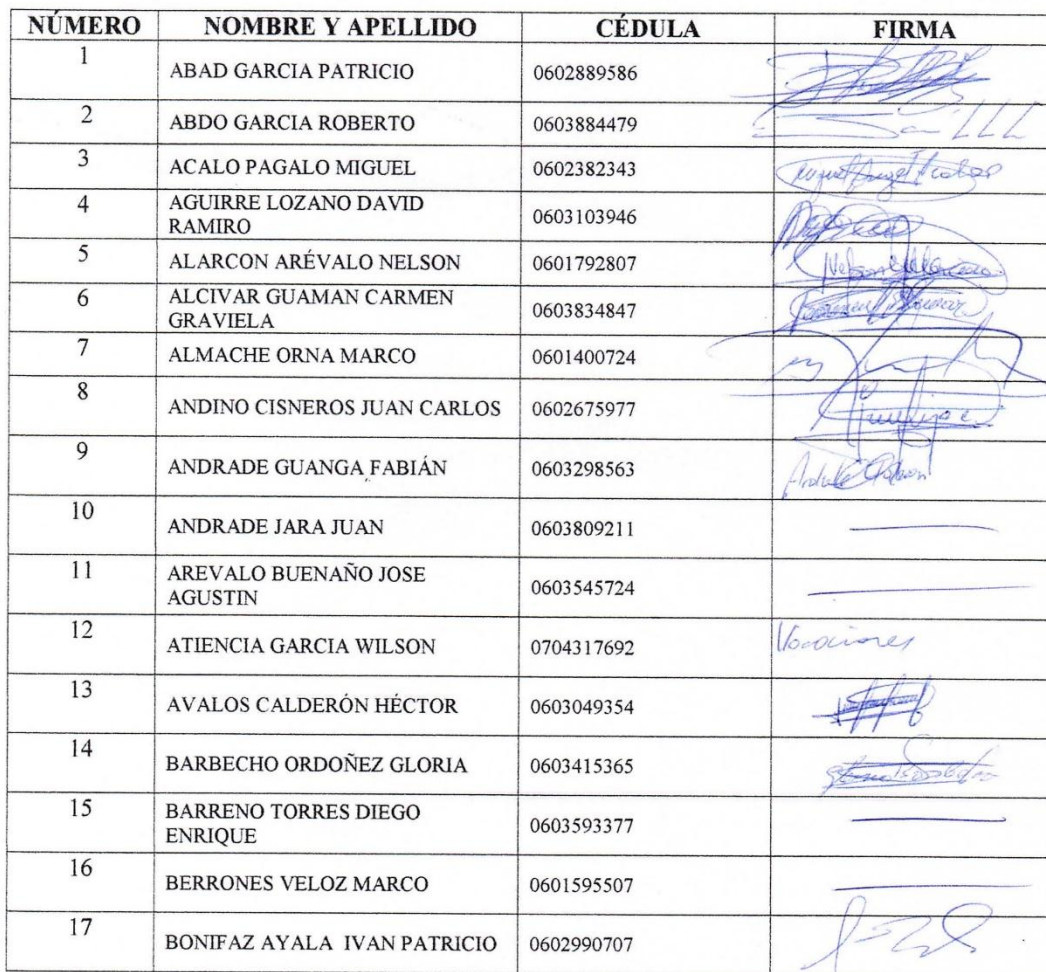 NÚMERO NOMBRE Y APELLIDO CÉDULA FIRMA
1 ABAD GARCIA PATRICIO 0602889586
2 ABDO GARCIA ROBERTO 0603884479
3 ACALO PAGALO MIGUEL 0602382343
4 AGUIRRE LOZANO DAVID
RAMIRO 0603103946
5 ALARCON ARÉVALO NELSON 0601792807
6 ALCIVAR GUAMAN CARMEN
GRAVIELA 0603834847
7 ALMACHE ORNA MARCO 0601400724
8 ANDINO CISNEROS JUAN CARLOS 0602675977
9 ANDRADE GUANGA FABIÁN 0603298563
10 ANDRADE JARA JUAN 0603809211
11 AREVALO BUENAÑO JOSE
AGUSTIN 0603545724
12 ATIENCIA GARCIA WILSON 0704317692 Vacaciones
13 AVALOS CALDERÓN HÉCTOR 0603049354
14 BARBECHO ORDOÑEZ GLORIA 0603415365
15 BARRENO TORRES DIEGO
ENRIQUE 0603593377
16 BERRONES VELOZ MARCO 0601595507
17 BONIFAZ AYALA IVAN PATRICIO 0602990707